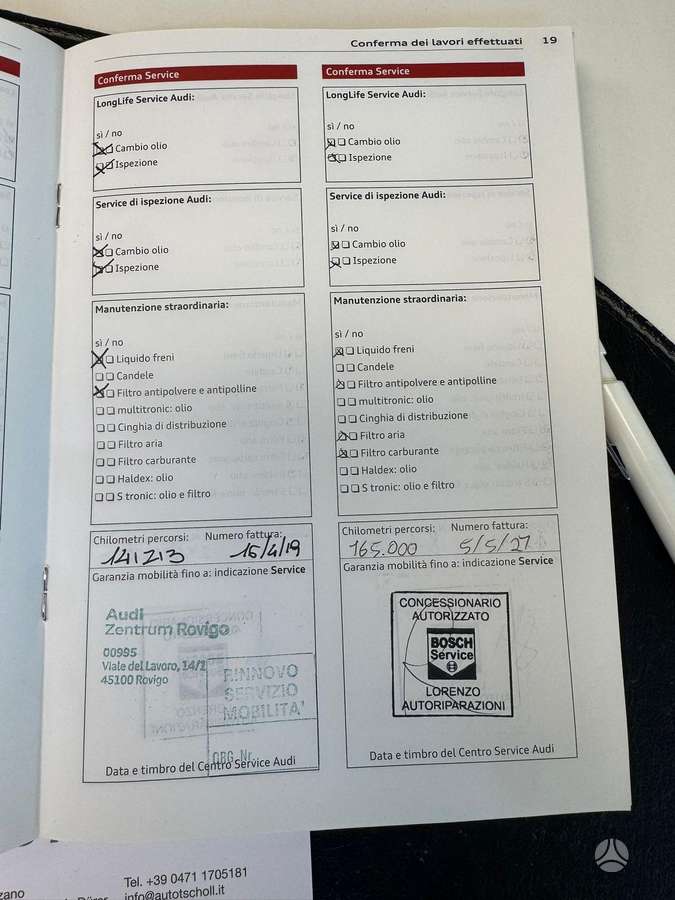 Conferma dei lavori effettuati 19
Conferma Service
LongLife Service Audi:
sì / no
Cambio olio
Ispezione
Service di ispezione Audi:
sì / no
Cambio olio
Ispezione
Manutenzione straordinaria:
sì / no
Liquido freni
Candele
Filtro antipolvere e antipolline
multitronic: olio
Cinghia di distribuzione
Filtro aria
Filtro carburante
Haldex: olio
S tronic: olio e filtro
Chilometri percorsi: Numero fattura:
141213 15/4/19
Garanzia mobilità fino a: indicazione Service
Audi
Zentrum Rovigo
00995
Viale del Lavoro, 14/1
45100 Rovigo
RINNOVO
SERVIZIO
MOBILITA'
ORG. Nr.
Data e timbro del Centro Service Audi
Conferma Service
LongLife Service Audi:
sì / no
Cambio olio
Ispezione
Service di ispezione Audi:
sì / no
Cambio olio
Ispezione
Manutenzione straordinaria:
sì / no
Liquido freni
Candele
Filtro antipolvere e antipolline
multitronic: olio
Cinghia di distribuzione
Filtro aria
Filtro carburante
Haldex: olio
S tronic: olio e filtro
Chilometri percorsi: Numero fattura:
165.000 5/5/21
Garanzia mobilità fino a: indicazione Service
CONCESSIONARIO
AUTORIZZATO
BOSCH
Service
LORENZO
AUTORIPARAZIONI
Data e timbro del Centro Service Audi
Tel. +39 0471 1705181
info@autotscholl.it